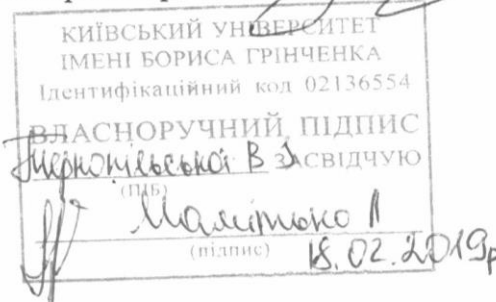 КИЇВСЬКИЙ УНІВЕРСИТЕТ
ІМЕНІ БОРИСА ГРІНЧЕНКА
Ідентифікаційний код 02136554
ВЛАСНОРУЧНИЙ ПІДПИС
Тернопільської В І ЗАСВІДЧУЮ
(ПІБ)
(підпис)
18.02.2019р